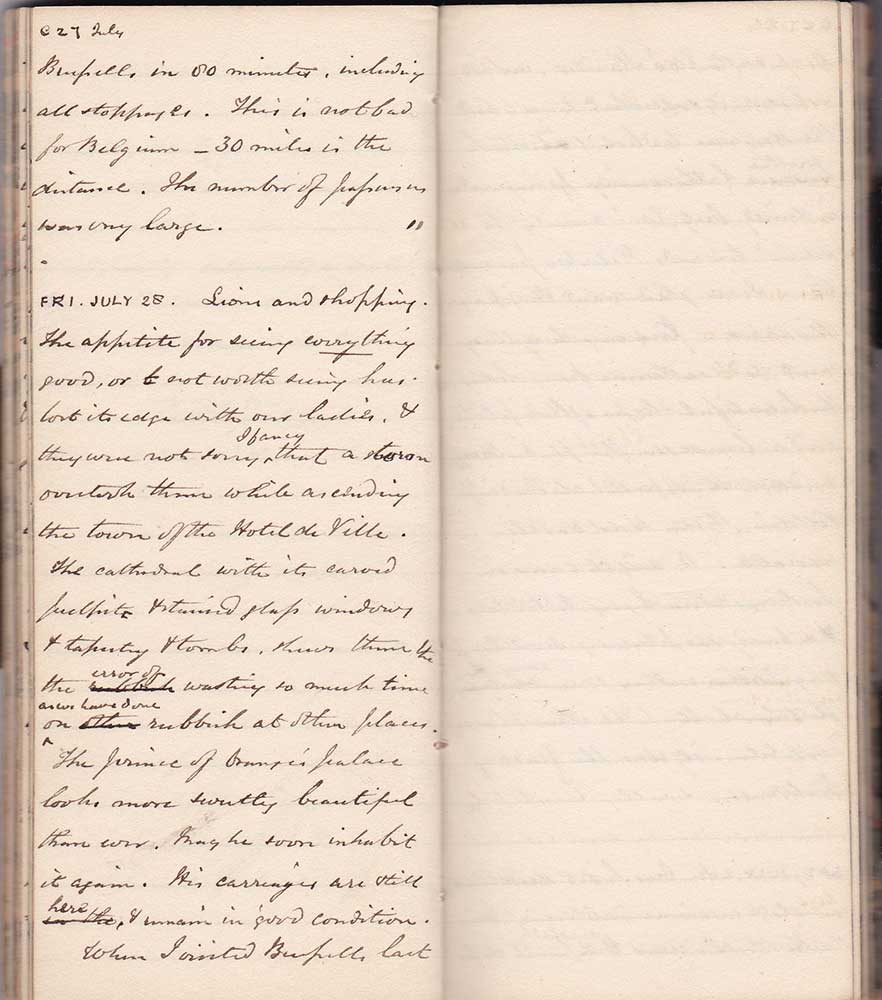 C 27 July
Brussells in 80 minutes, including
all stoppages. This is not bad
for Belgium – 30 miles is the
distance. The number of passengers
was very large. "
FRI. JULY 28. Lions and shopping.
The appetite for seeing everything
good, or t not worth seeing has
lost its edge with our ladies, &
I fancy
they were not sorry, that a storm
overtook them while ascending
the town of the Hotel de Ville.
The cathedral with its carved
pulpit, & stained glass windows
& tapestry & tombs, shews them the
error of
the rubbish wasting so much time
as we have done
on other rubbish at other places.
The prince of Orange's palace
looks more sweetly beautiful
than ever. May he soon inhabit
it again. His carriages are still
here
in the, & remain in good condition.
When I visited Brussells last